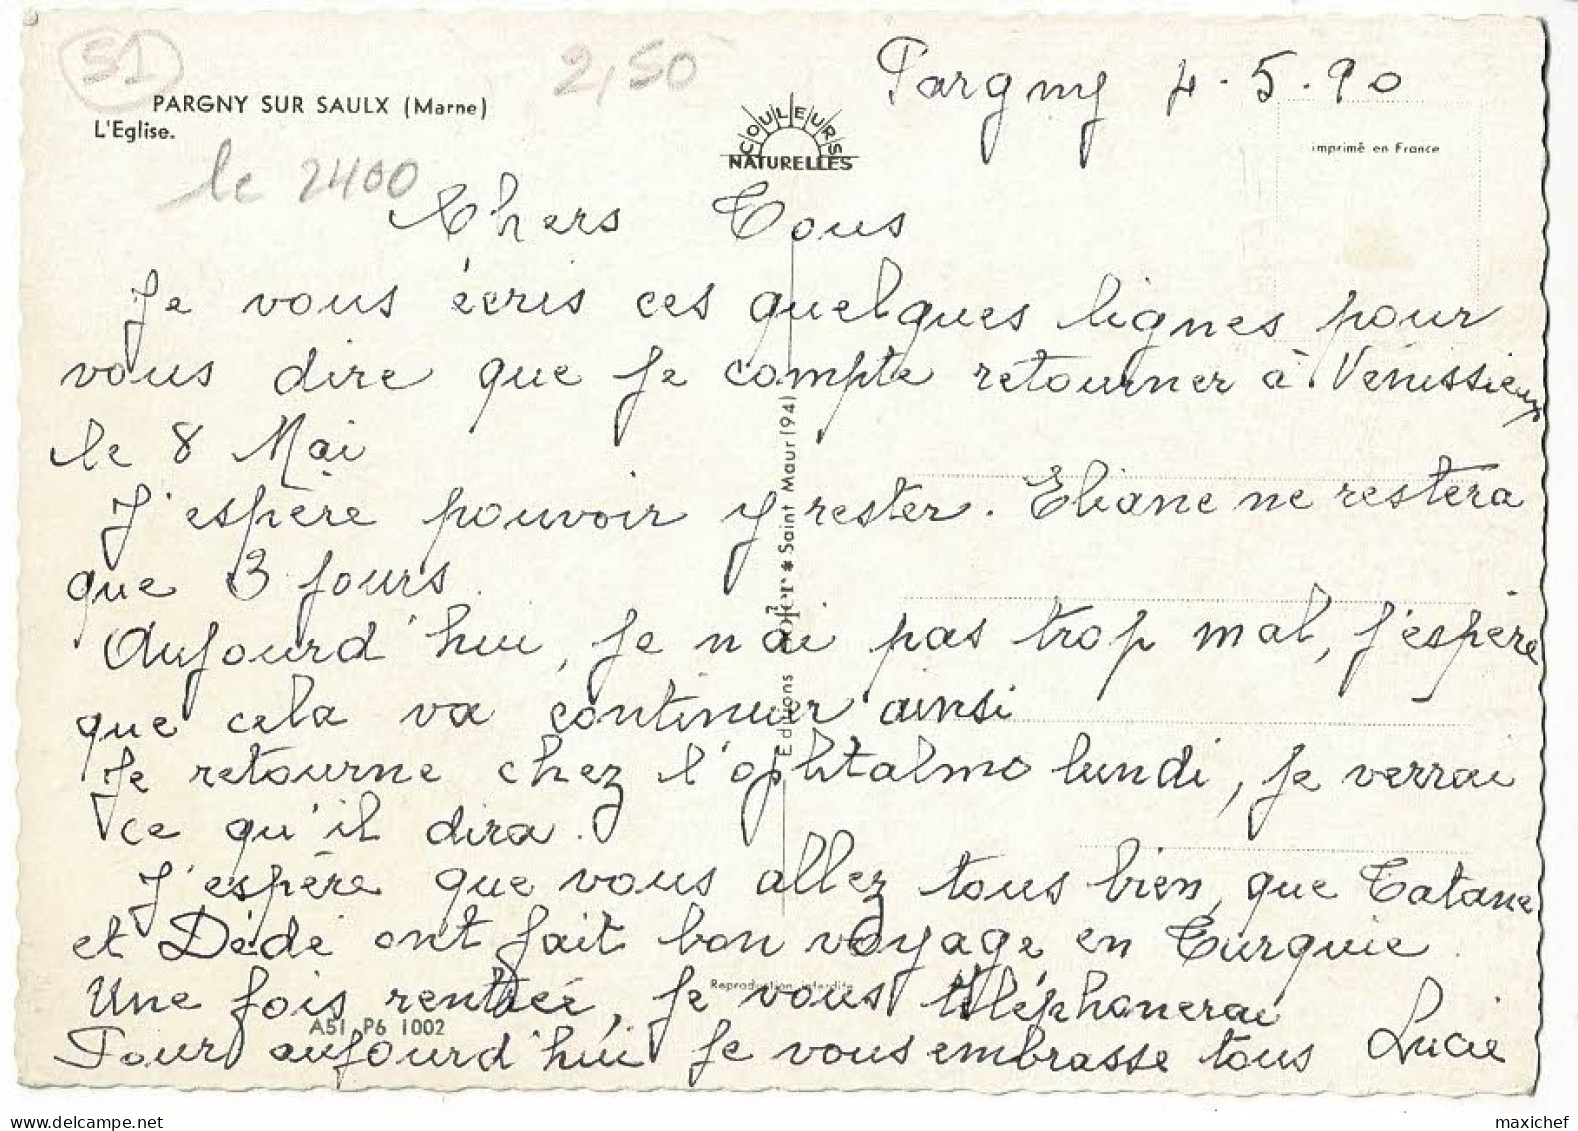 51
2,50
Pargny 4.5.90
PARGNY SUR SAULX (Marne)
L'Eglise.
COULEURS
NATURELLES
imprimé en France
le 2400
Chers Tous
Je vous écris ces quelques lignes pour
vous dire que je compte retourner à Vénissieux
le 8 Mai
J'espère pouvoir y rester. Eliane ne restera
que 3 jours.
Aujourd'hui, je n'ai pas trop mal, j'espère
que cela va continuer ainsi
Je retourne chez l'ophtalmo lundi, je verrai
ce qu'il dira.
J'espère que vous allez tous bien, que Tatane
et Dédé ont fait bon voyage en Turquie.
Une fois rentrée, je vous téléphonerai
Pour aujourd'hui je vous embrasse tous Lucie
Editions * Saint Maur (94)
Reproduction interdite
A51 P6 1002
maxichef
www.delcampe.net